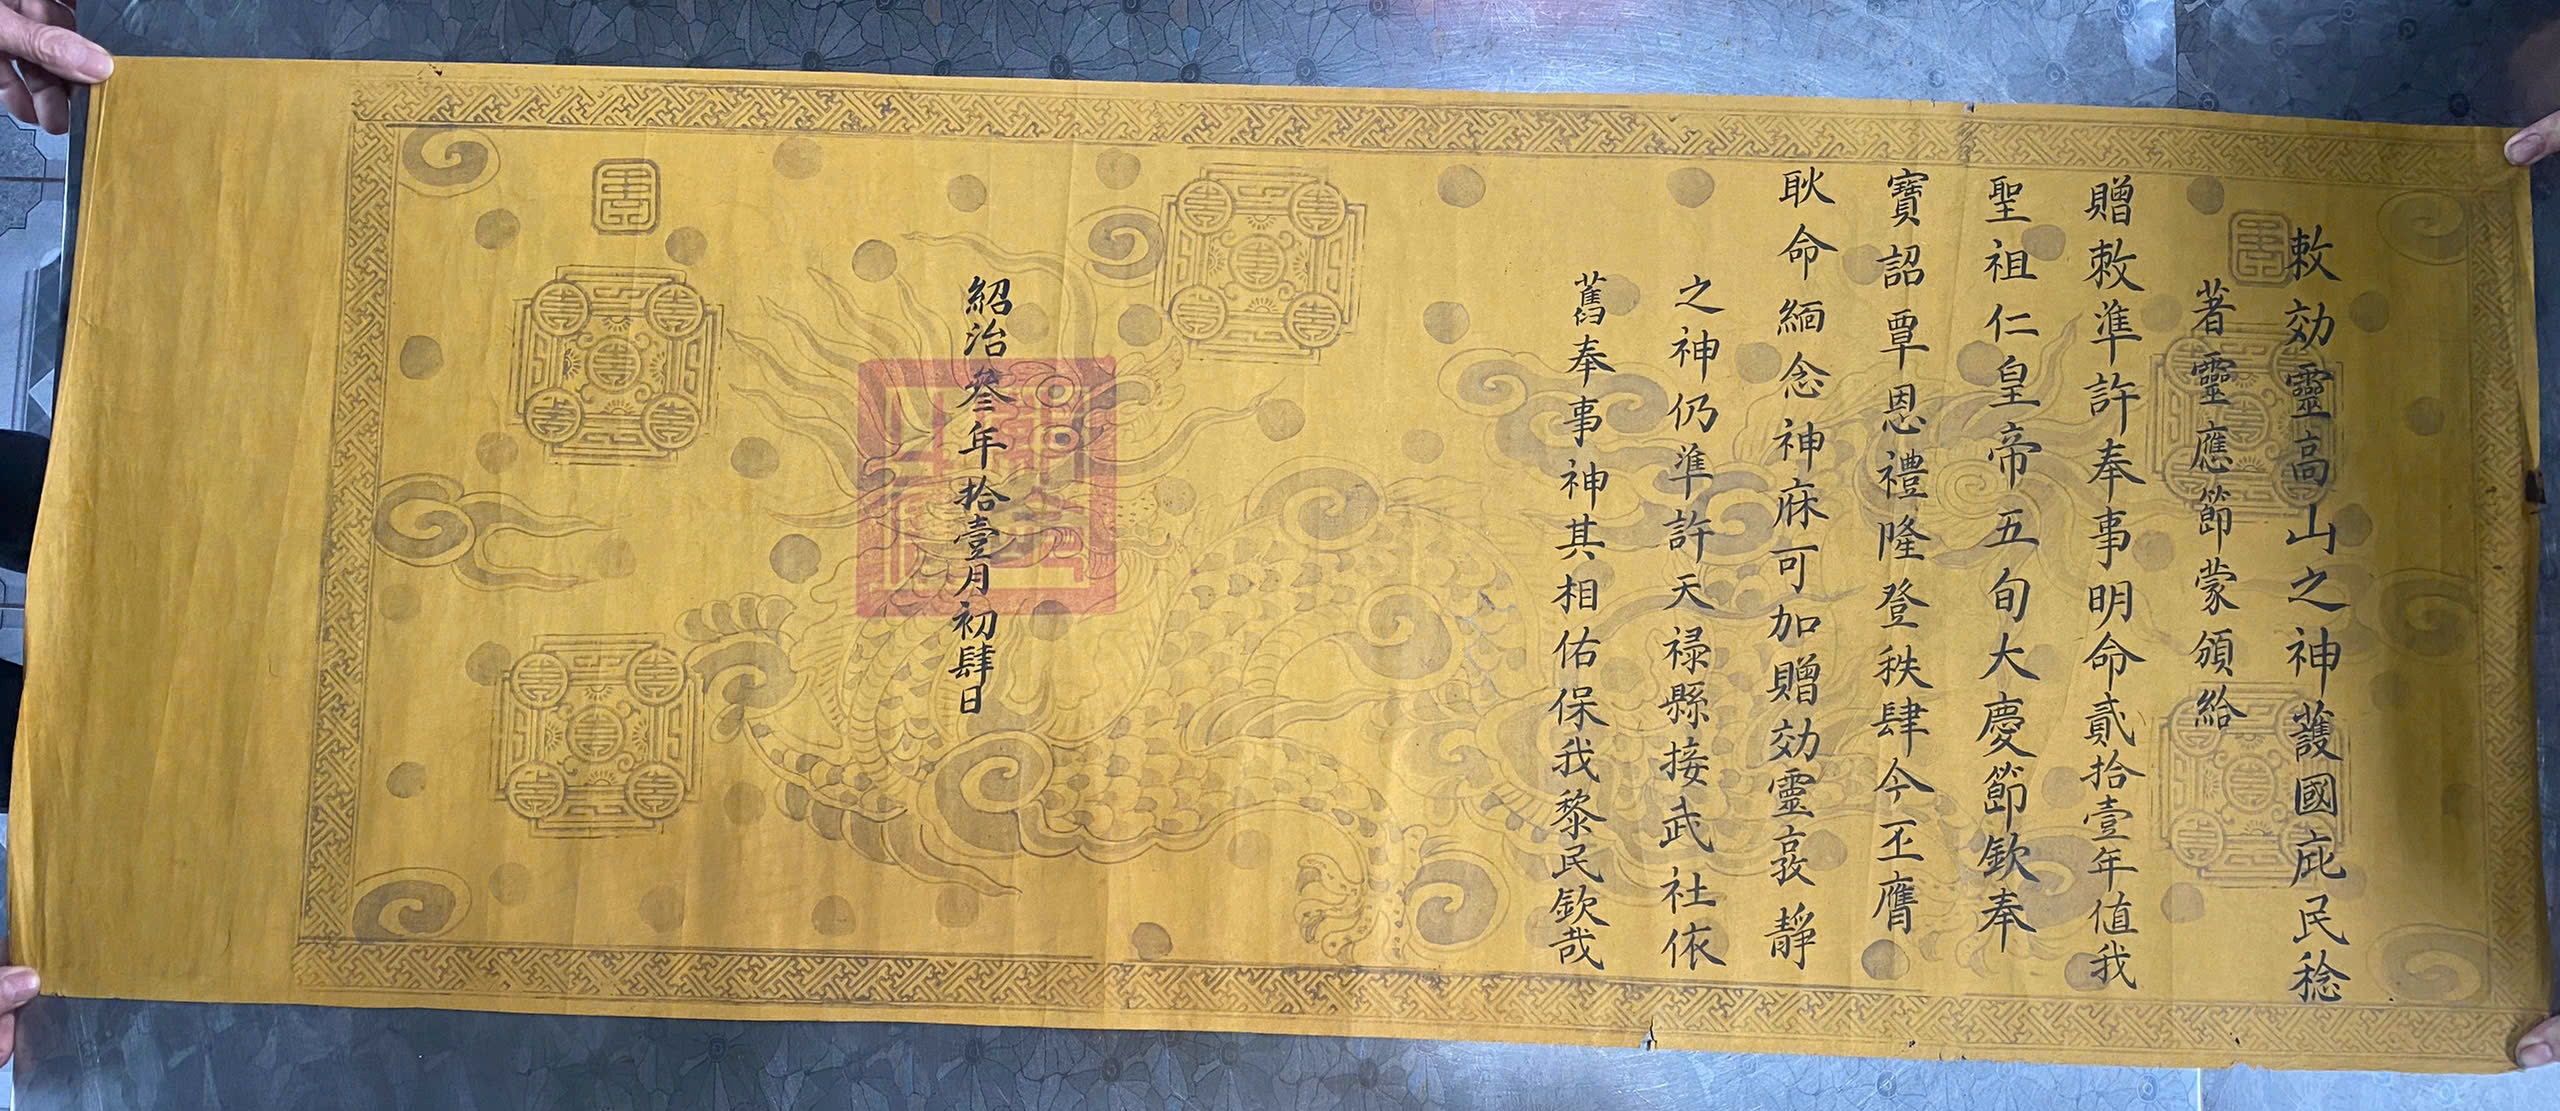 敕効靈高山之神護國庇民稔
著靈應節蒙頒給
贈敕準許奉事明命貳拾壹年值我
聖祖仁皇帝五旬大慶節欽奉
寳詔覃恩禮隆登秩肆今丕膺
耿命緬念神庥可加贈効靈敦靜
之神仍準許天祿縣接武社依
舊奉事神其相佑保我黎民欽哉
紹治叄年拾壹月初肆日